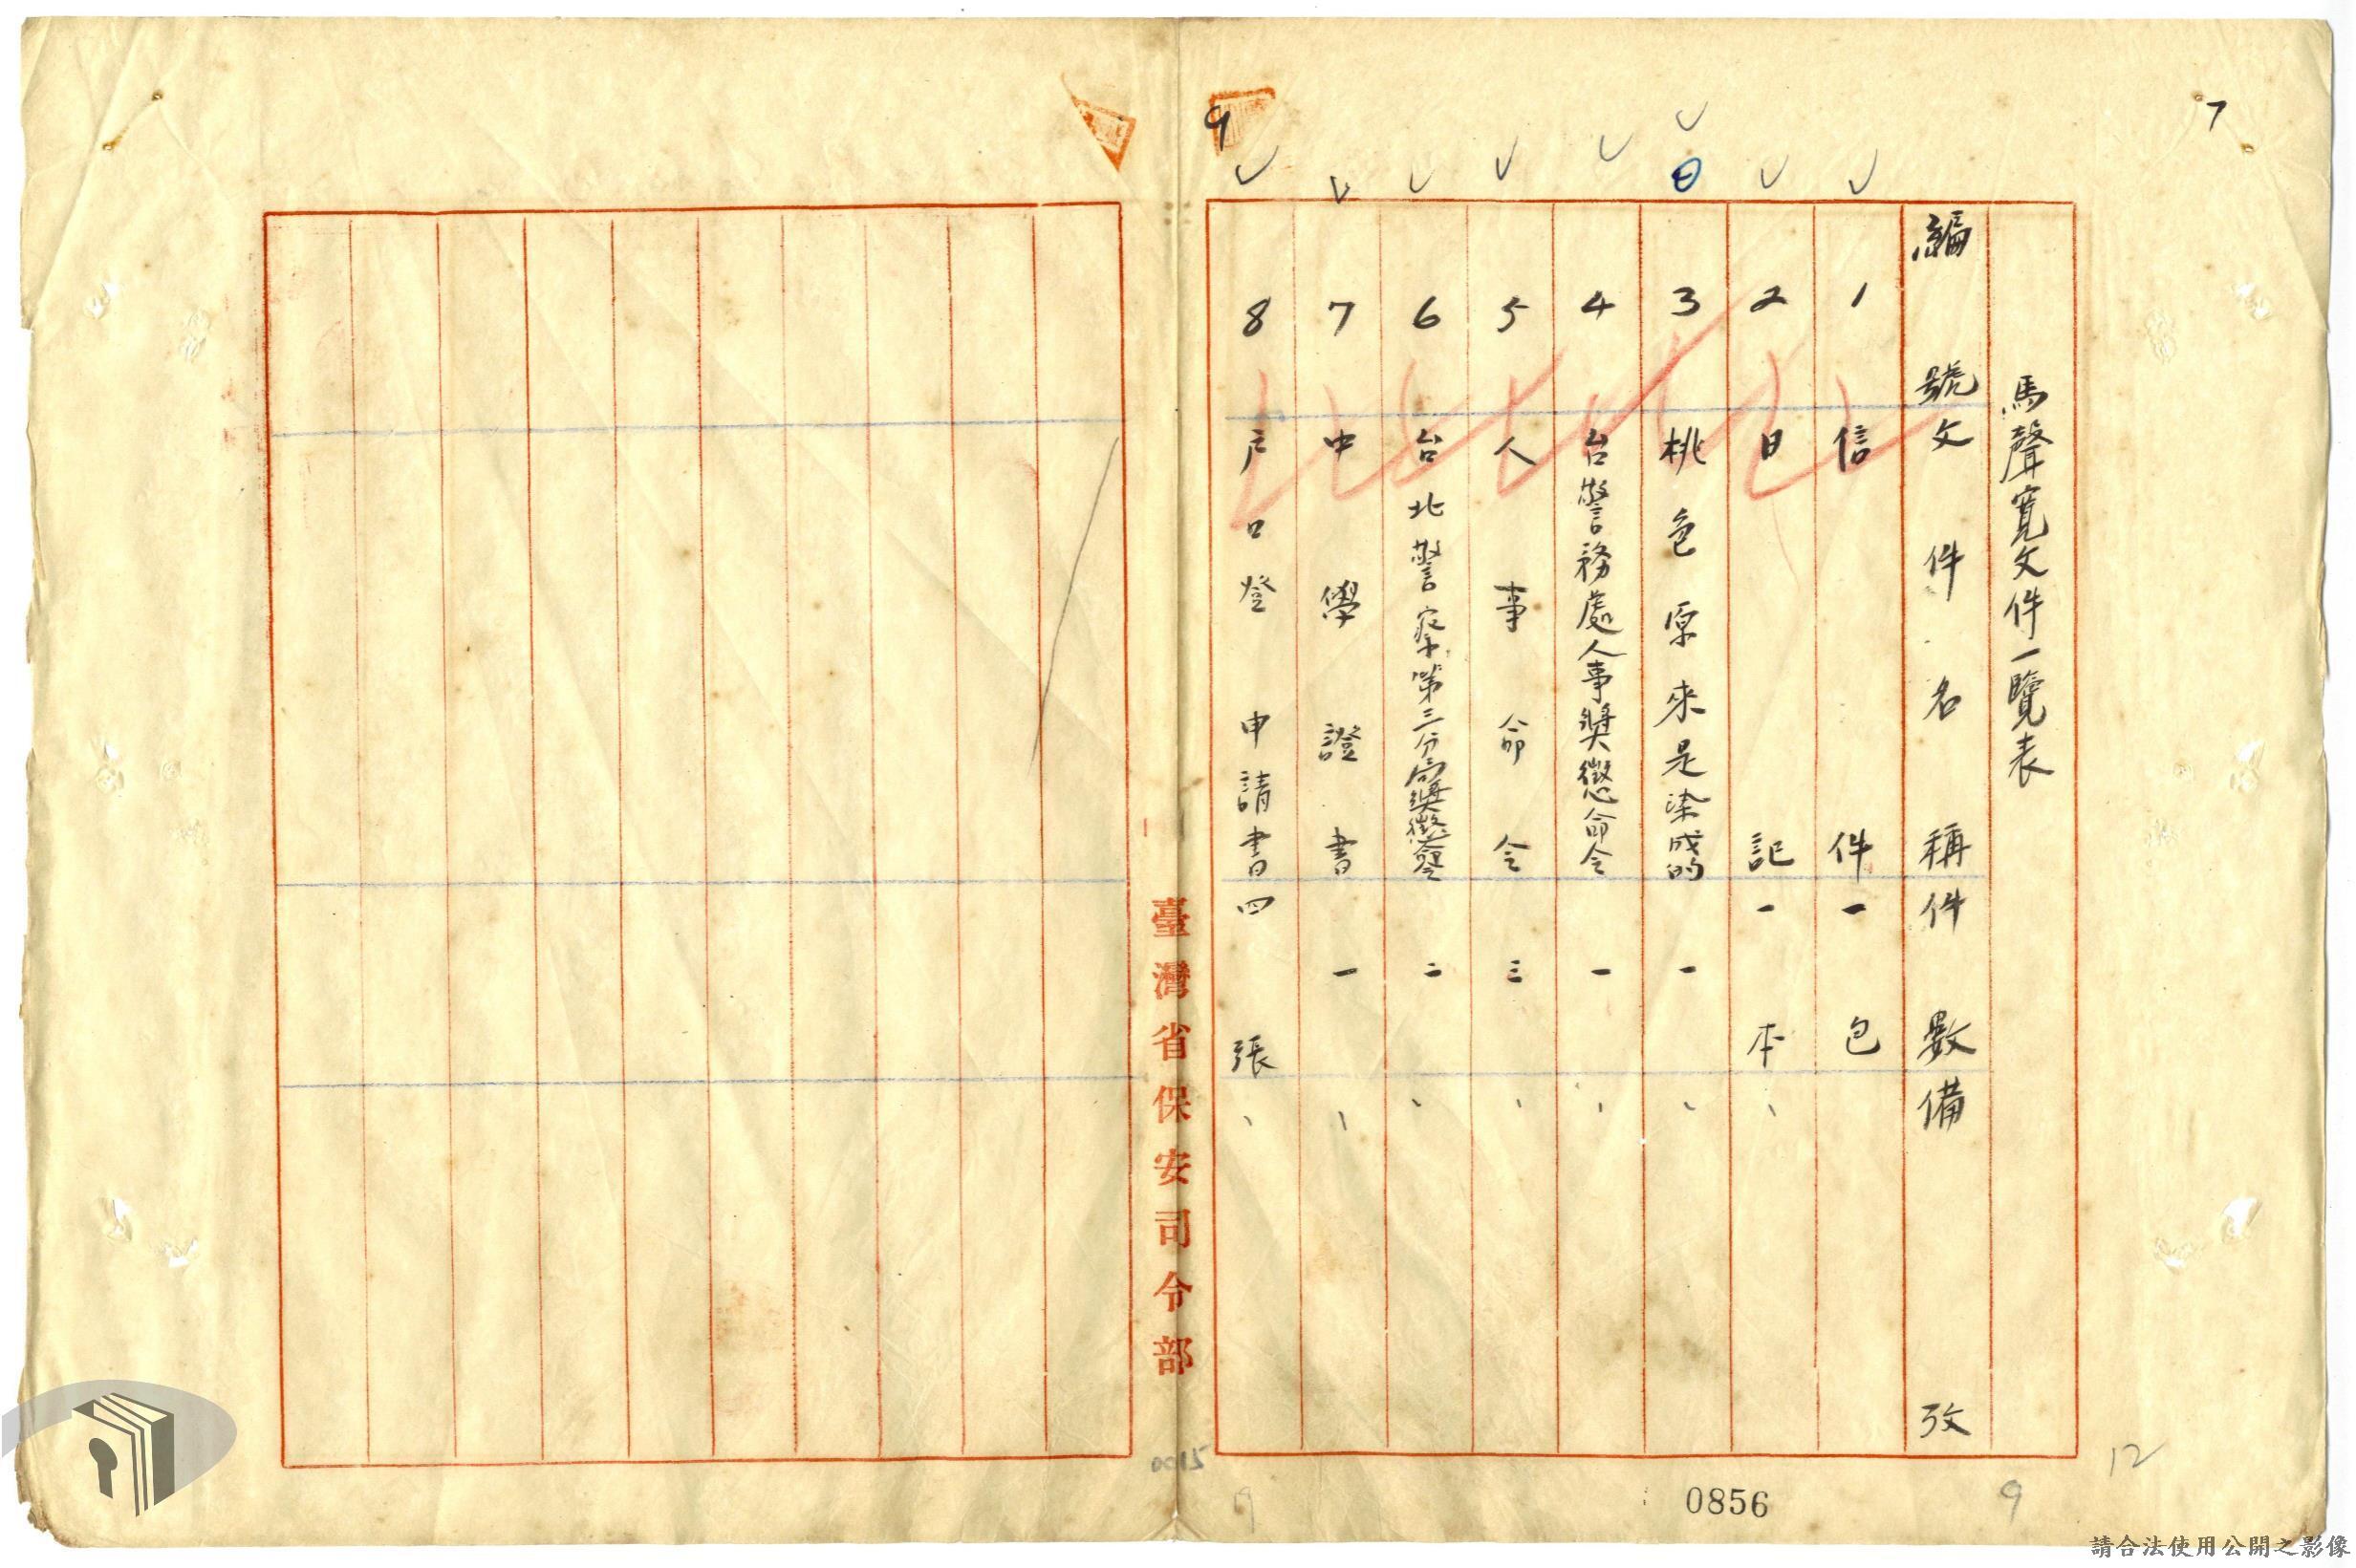 7
馬聲寬文件一覽表
編號 文件名稱 件數 備攷
1 信件 一包
2 日記 一本 、
3 桃色原來是染成的 一 、
4 台警務處人事獎懲命令 一 、
5 人事命令 三 、
6 台北警察第三分局獎懲令 二 、
7 中學證書 一 、
8 戶口登申請書 四張 、
9
臺灣省保安司令部
0856
9
12
請合法使用公開之影像